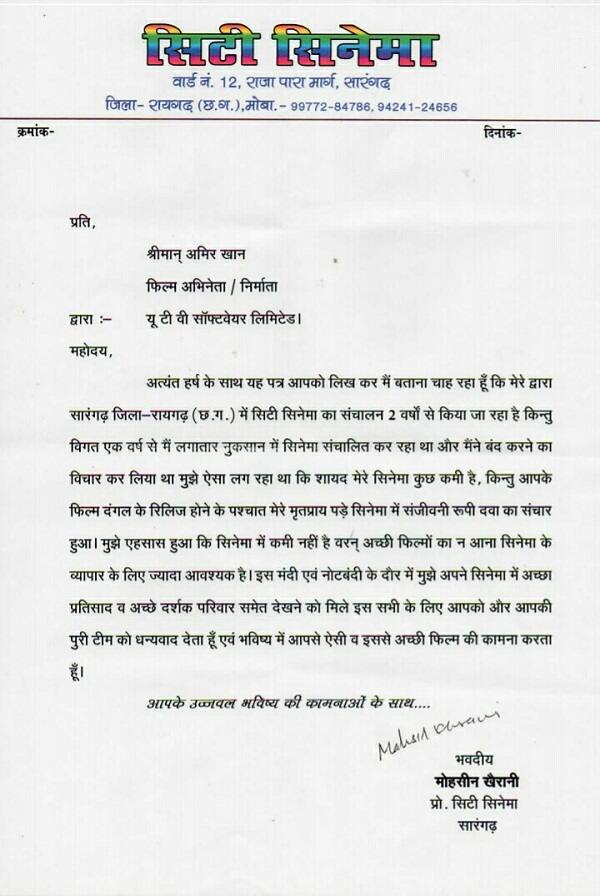 सिटी सिनेमा
वार्ड नं. 12, राजा पारा मार्ग, सारंगढ़
जिला- रायगढ़ (छ.ग.),मोबा.- 99772-84786, 94241-24656
क्रमांक-
दिनांक-
प्रति,
श्रीमान् अमिर खान
फिल्म अभिनेता / निर्माता
द्वारा :– यू टी वी सॉफ्टवेयर लिमिटेड।
महोदय,
अत्यंत हर्ष के साथ यह पत्र आपको लिख कर मैं बताना चाह रहा हूँ कि मेरे द्वारा
सारंगढ़ जिला–रायगढ़ (छ.ग.) में सिटी सिनेमा का संचालन 2 वर्षो से किया जा रहा है किन्तु
विगत एक वर्ष से मैं लगातार नुकसान में सिनेमा संचालित कर रहा था और मैंने बंद करने का
विचार कर लिया था मुझे ऐसा लग रहा था कि शायद मेरे सिनेमा कुछ कमी है, किन्तु आपके
फिल्म दंगल के रिलिज होने के पश्चात मेरे मृतप्राय पड़े सिनेमा में संजीवनी रूपी दवा का संचार
हुआ। मुझे एहसास हुआ कि सिनेमा में कमी नहीं है वरन् अच्छी फिल्मों का न आना सिनेमा के
व्यापार के लिए ज्यादा आवश्यक है। इस मंदी एवं नोटबंदी के दौर में मुझे अपने सिनेमा में अच्छा
प्रतिसाद व अच्छे दर्शक परिवार समेत देखने को मिले इस सभी के लिए आपको और आपकी
पुरी टीम को धन्यवाद देता हूँ एवं भविष्य में आपसे ऐसी व इससे अच्छी फिल्म की कामना करता
हूँ।
आपके उज्जवल भविष्य की कामनाओं के साथ....
भवदीय
मोहसीन खैरानी
प्रो. सिटी सिनेमा
सारंगढ़